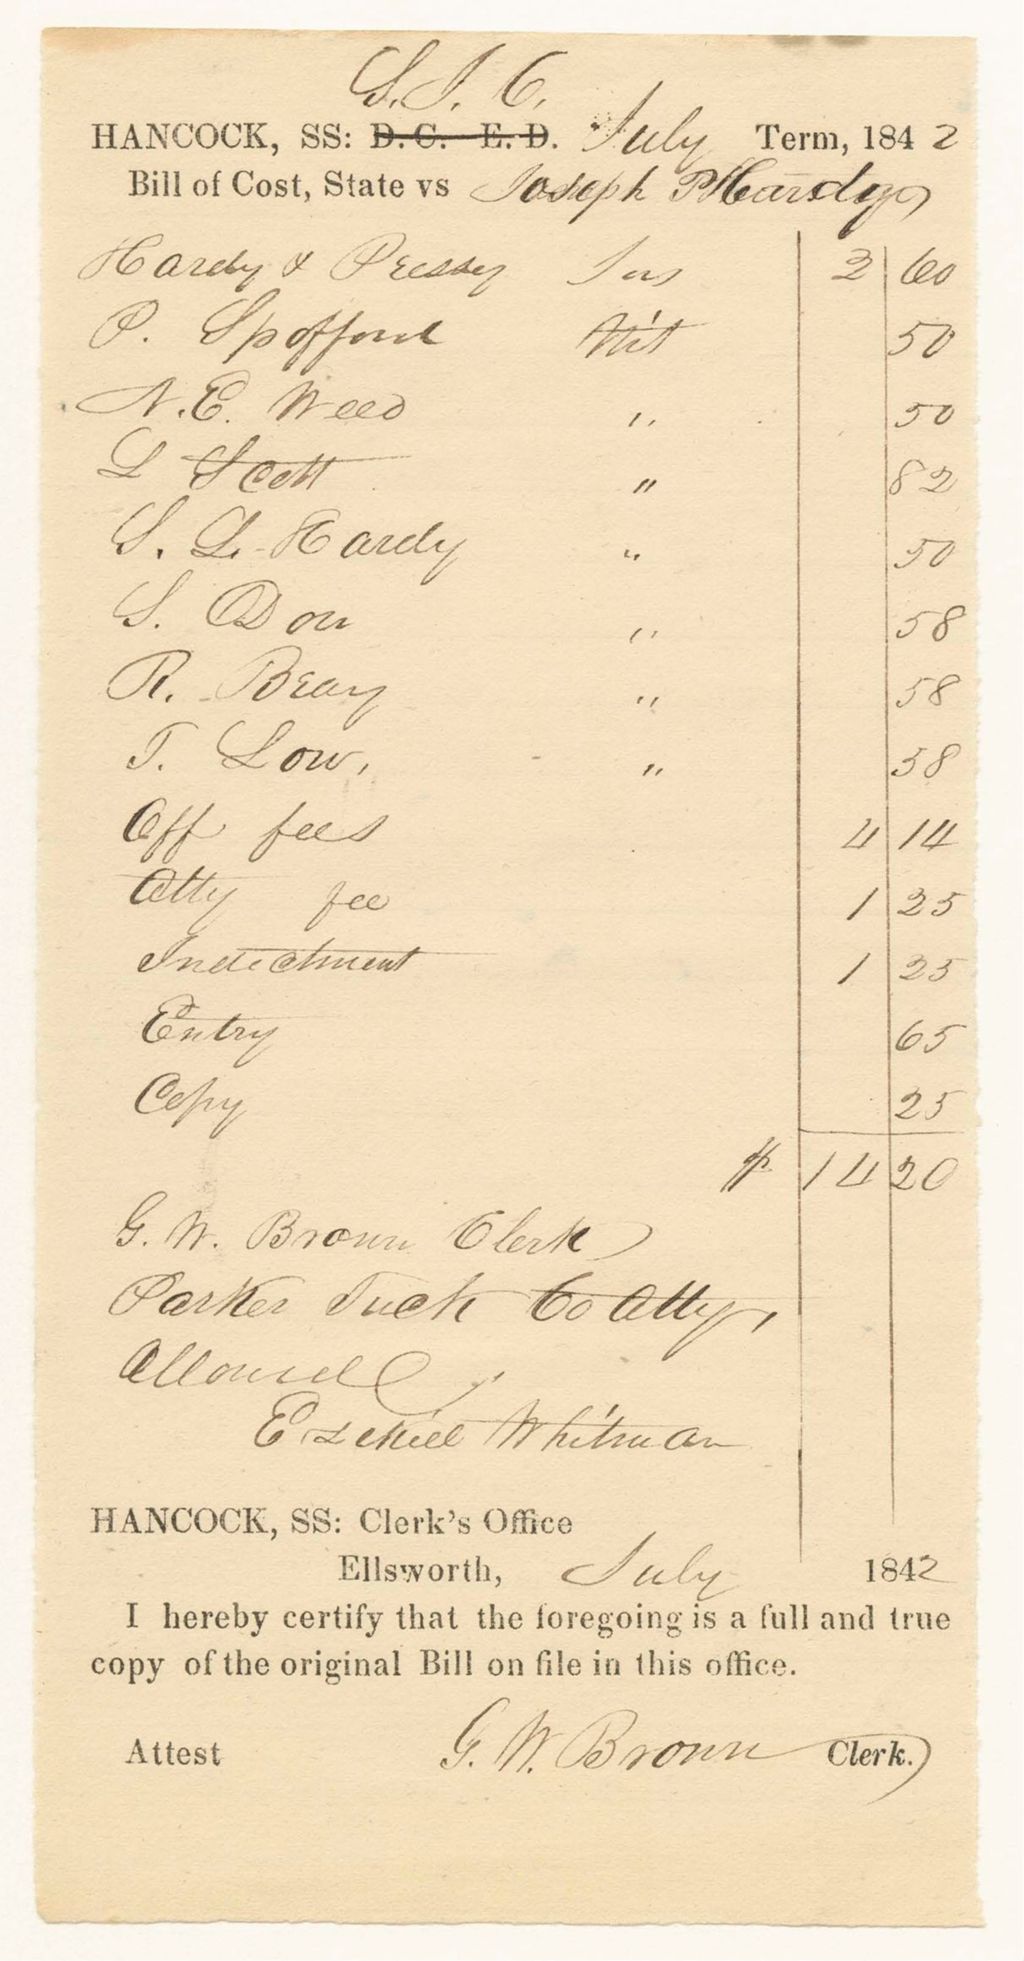 S. J. C.
HANCOCK, SS: D. C. E. D. July Term, 1842
Bill of Cost, State vs Joseph P Hardy
Hardy & Pressey Jus 2 60
P. Spofford Wit 50
N. E. Weed " 50
L Scott " 82
S. L. Hardy " 50
S. Dow " 58
R. Bray " 58
T. Low, " 58
Off fees 4 14
Atty fee 1 25
Indictment 1 25
Entry 65
Copy 25
$ 14 20
G. W. Brown Clerk
Parker Tuck Co Atty,
Allowed
Ezekiel Whitman
HANCOCK, SS: Clerk's Office
Ellsworth, July 1842
I hereby certify that the foregoing is a full and true
copy of the original Bill on file in this office.
Attest G. W. Brown Clerk.